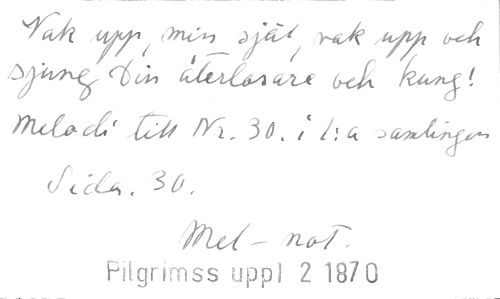 Vak upp, min själ, vak upp och
sjung Din återlösare och kung!
Melodi till Nr. 30. i l:a samlingen
Sida. 30.
Mel - not.
Pilgrimss uppl 2 1870